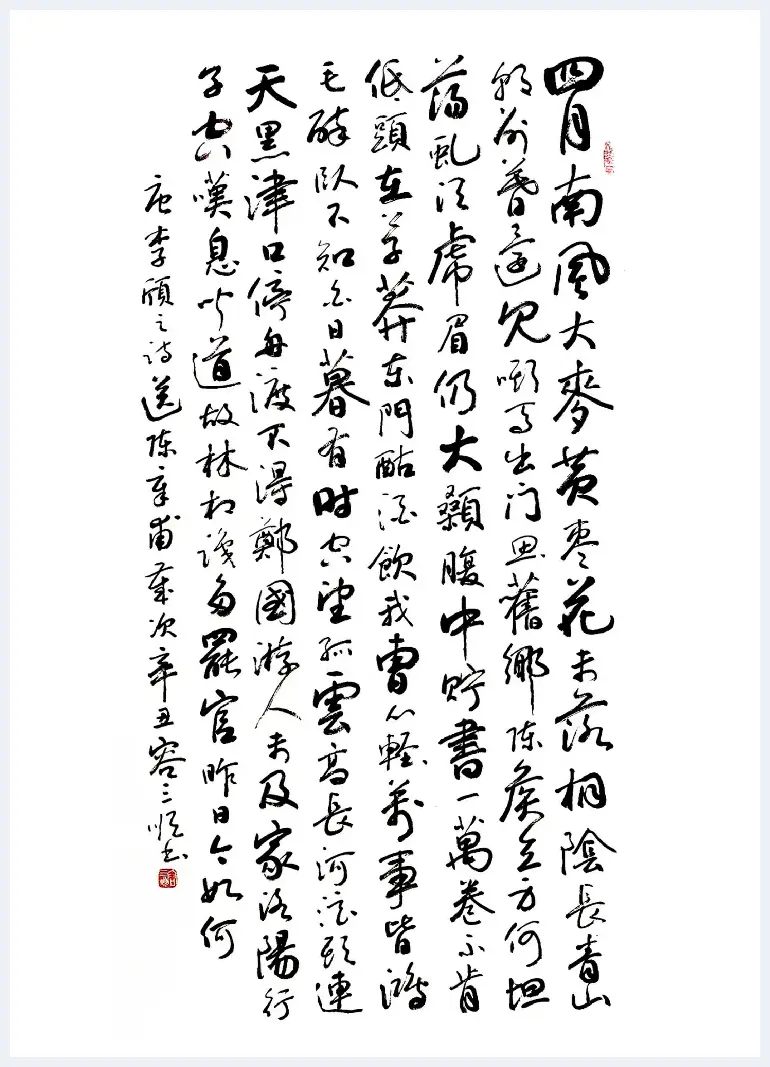 四月南風大麥黄枣花未落桐陰長青山
朝别暮還见嘶马出门思舊鄉陈侯立身何坦
蕩虬须虎眉仍大顙腹中贮書一萬卷不肯
低頭在草莽东門酤酒飲我曹心輕萬事皆鴻
毛醉卧不知白日暮有时空望孤雲高長河浪头連
天黑津口停舟渡不得鄭國游人未及家洛陽行
子空嘆息闻道故林相識多罷官昨日今如何
唐李颀之诗送陈章甫歲次辛丑容三顺书